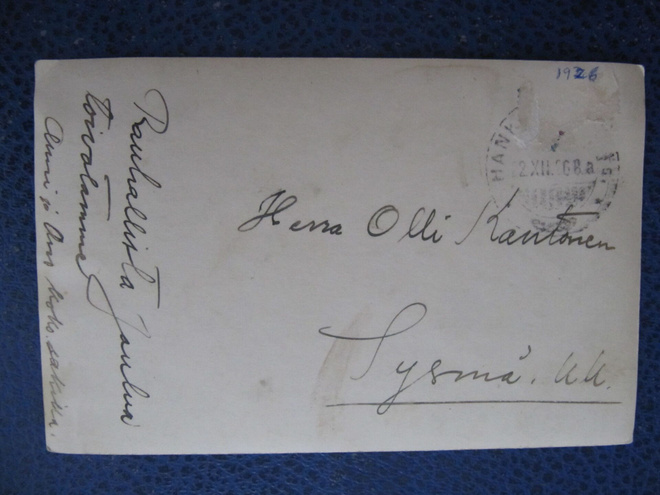 Rauhallista Joulua
toivotamme
Anni ja
1926
HAN
2 XII.26 8.a
Herra Olli Kantonen
Sysmä.